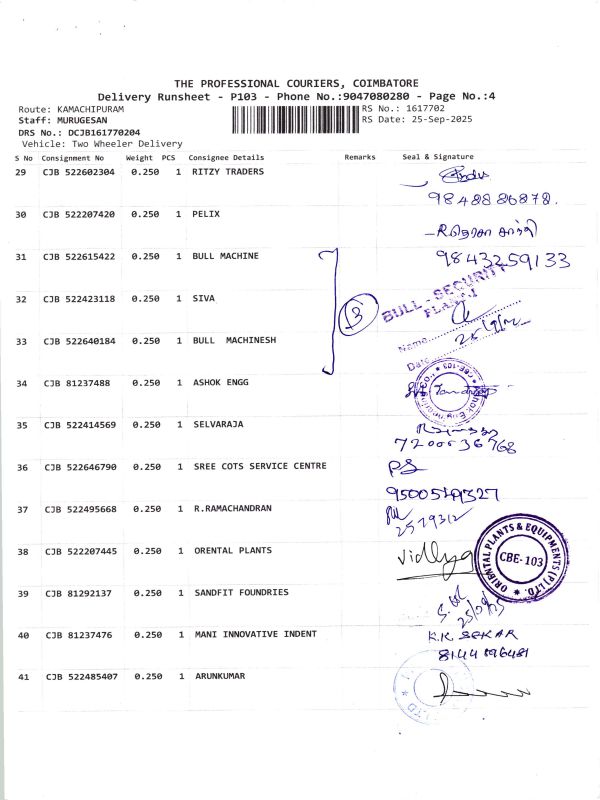 THE PROFESSIONAL COURIERS, COIMBATORE
Delivery Runsheet - P103 - Phone No.:9047080280 - Page No.:4
Route: KAMACHIPURAM
RS No.: 1617702
Staff: MURUGESAN
RS Date: 25-Sep-2025
DRS No.: DCJB161770204
Vehicle: Two Wheeler Delivery
S No Consignment No Weight PCS Consignee Details Remarks Seal & Signature
29 CJB 522602304 0.250 1 RITZY TRADERS
9848886878.
30 CJB 522207420 0.250 1 PELIX
31 CJB 522615422 0.250 1 BULL MACHINE 9843259133
BULL - SECURITY
32 CJB 522423118 0.250 1 SIVA 3
Name
33 CJB 522640184 0.250 1 BULL MACHINESH
Date
34 CJB 81237488 0.250 1 ASHOK ENGG
CBE-103
35 CJB 522414569 0.250 1 SELVARAJA
36 CJB 522646790 0.250 1 SREE COTS SERVICE CENTRE PS
37 CJB 522495668 0.250 1 R.RAMACHANDRAN
2579312
38 CJB 522207445 0.250 1 ORENTAL PLANTS Vidhya
ORIENTAL PLANTS & EQUIPMENTS (P) LTD.
CBE-103
39 CJB 81292137 0.250 1 SANDFIT FOUNDRIES
25/09/25
40 CJB 81237476 0.250 1 MANI INNOVATIVE INDENT K.K SEKAR
41 CJB 522485407 0.250 1 ARUNKUMAR